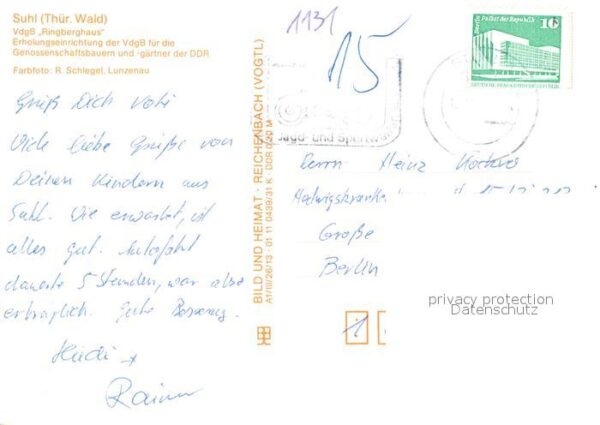 Suhl (Thür. Wald)
VdgB „Ringberghaus"
Erholungseinrichtung der VdgB für die
Genossenschaftsbauern und -gärtner der DDR
Farbfoto: R. Schlegel, Lunzenau
Grüß Dich Vati
Viele liebe Grüße von
Deinen Kindern aus
Suhl. Wie erwartet, ist
alles gut. Autofahrt
dauerte 5 Stunden, war aber
erträglich. Gute Besserung.
Heidi +
Rainer
BILD UND HEIMAT · REICHENBACH (VOGTL)
A1/III/26/13 · 01 11 0439/31 K · DDR 0,20 M
1131
15
Berlin Palast der Republik
10
DEUTSCHE DEMOKRATISCHE REPUBLIK
Jagd- und
Herrn Heinz
Große
Berlin
1
privacy protection
Datenschutz